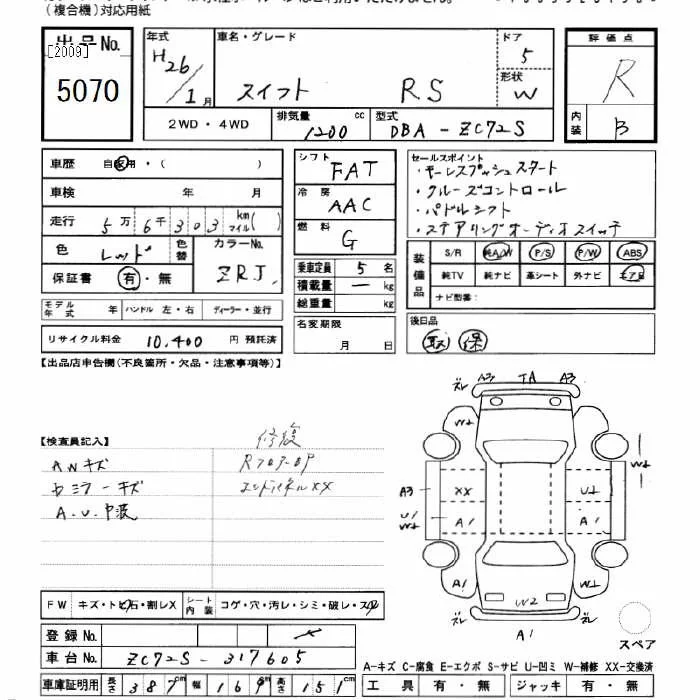 (複合機)対応用紙
出品No.
[2009]
5070
年式
H26/1月
車名・グレード
スイフト RS
ドア
5
形状
W
2WD・4WD
排気量
1200 cc
型式
DBA-ZC72S
評価点
R
内装
B
車歴 自家用・( )
車検 年 月
走行 5万6千303 km マイル( )
色 レッド 色替 カラーNo. ZRJ
保証書 有・無
モデル年式 年 ハンドル 左・右 ディーラー・並行
リサイクル料金 10,400 円 預託済
シフト FAT
冷房 AAC
燃料 G
乗車定員 5 名
積載量 ー kg
総重量 kg
名変期限
月 日
セールスポイント
・キーレスプッシュスタート
・クルーズコントロール
・パドルシフト
・ステアリングオーディオスイッチ
装備品
S/R 純A/W P/S P/W ABS
純TV 純ナビ 革シート 外ナビ エアB
ナビ型番:
後日品
取 保
【出品店申告欄(不良箇所・欠品・注意事項等)】
【検査員記入】
修復
AWキズ
カミラーキズ
A.U.中波
FW キズ・トビ石・割レX シート内装 コゲ・穴・汚レ・シミ・破レ・スレ
登録No.
車台No. ZC72S-317605
車庫証明用 長さ 387cm 幅 169cm 高さ 151cm
ズレ A3 TA A3 ズレ
W2 W2
W2
A3 XX U2
U1 W2 A1 A1
A1 W2 A1
ズレ A1 ズレ
スペア
A-キズ C-腐食 E-エクボ S-サビ U-凹ミ W-補修 XX-交換済
工具 有・無 ジャッキ 有・無